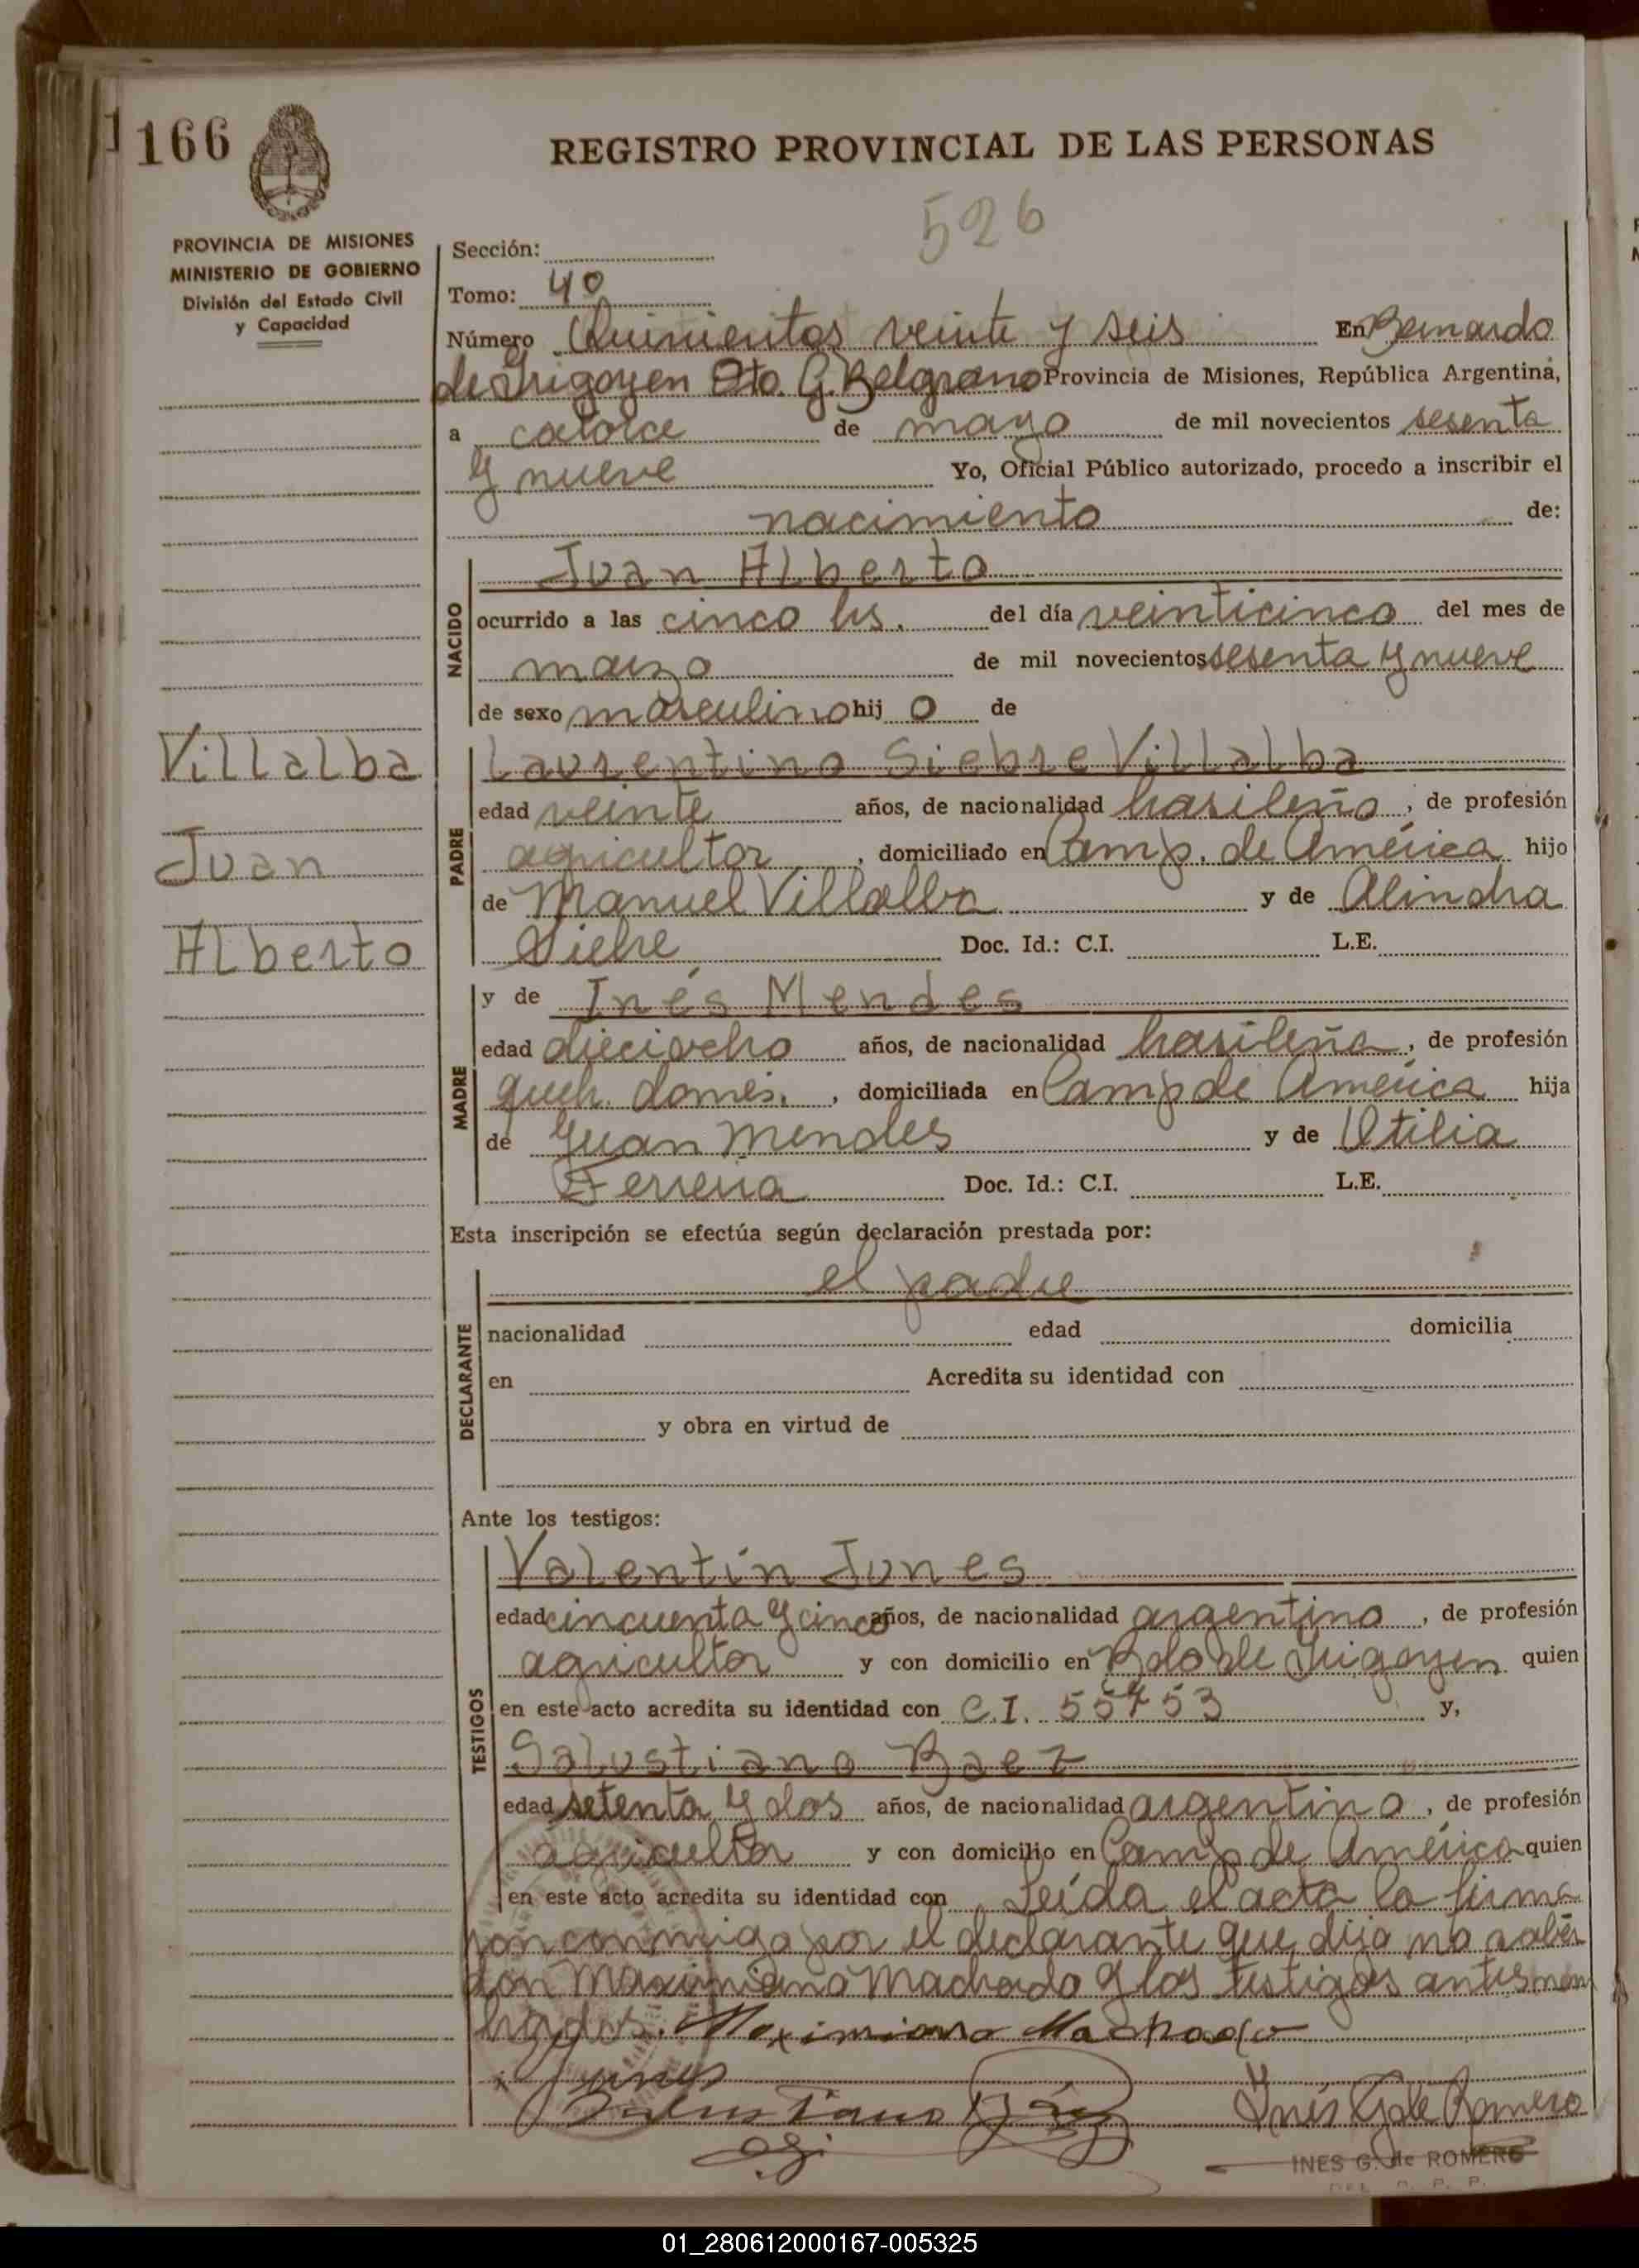 166
REGISTRO PROVINCIAL DE LAS PERSONAS
526
PROVINCIA DE MISIONES
MINISTERIO DE GOBIERNO
División del Estado Civil
y Capacidad
Sección:
Tomo: 40
Número Quinientos veinte y seis En Bernardo
de Irigoyen Dto. G. Belgrano Provincia de Misiones, República Argentina,
a catorce de mayo de mil novecientos sesenta
y nueve Yo, Oficial Público autorizado, procedo a inscribir el
nacimiento de:
NACIDO
Juan Alberto
ocurrido a las cinco hs. del día veinticinco del mes de
marzo de mil novecientos sesenta y nueve
de sexo masculino hijo de
Villalba
Juan
Alberto
PADRE
Laurentino Siebre Villalba
edad veinte años, de nacionalidad brasileño, de profesión
agricultor, domiciliado en Camp. de América hijo
de Manuel Villalba y de Alindra
Siebre Doc. Id.: C.I. L.E.
MADRE
y de Inés Mendes
edad dieciocho años, de nacionalidad brasileña, de profesión
queh. domés., domiciliada en Camp de América hija
de Juan Mendes y de Otilia
Ferreira Doc. Id.: C.I. L.E.
Esta inscripción se efectúa según declaración prestada por:
DECLARANTE
el padre
nacionalidad edad domicilia
en Acredita su identidad con
y obra en virtud de
Ante los testigos:
TESTIGOS
Valentín Junes
edad cincuenta y cinco años, de nacionalidad argentino, de profesión
agricultor y con domicilio en Bdo de Irigoyen quien
en este acto acredita su identidad con C.I. 55453 y,
Salustiano Baez
edad setenta y dos años, de nacionalidad argentino, de profesión
agricultor y con domicilio en Camp de América quien
en este acto acredita su identidad con Leída el acta la firma
ron conmigo por el declarante que dijo no saber
don Maximiano Machado y los testigos antes nom
brados. Maximiano Machado
Junes
Salustiano Báez Inés G de Romero
INES G. de ROMERO
DEL R. P. P.
01_280612000167-005325